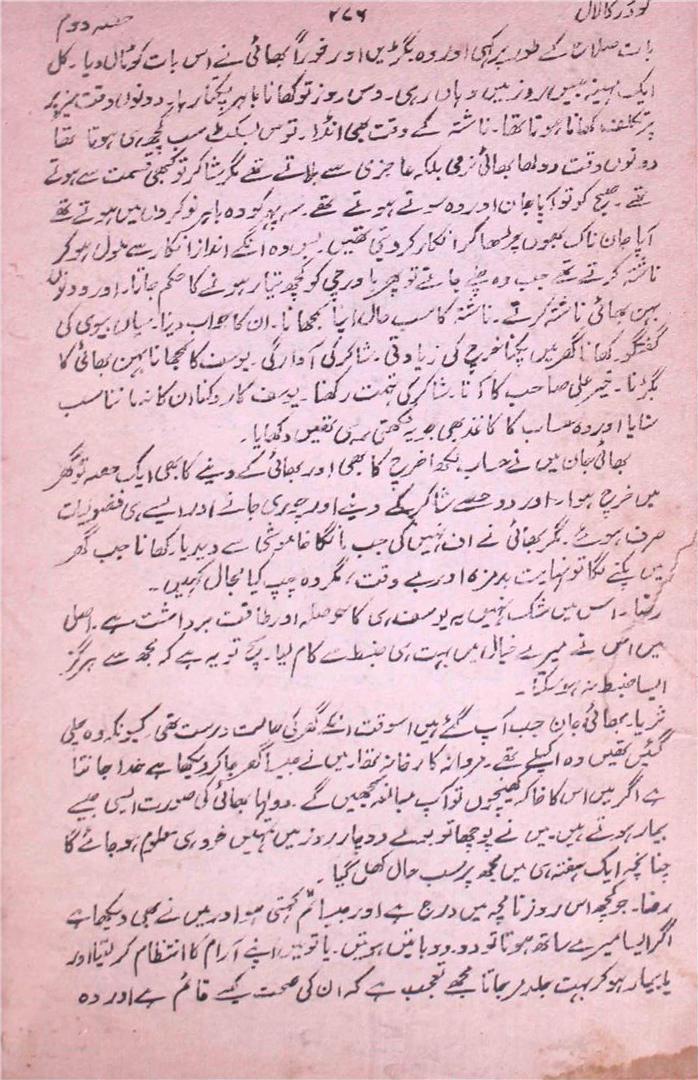 گودڑ کا لال ۲۷۶ حصہ دوم
بات صلاح کے طور پر کہی اور وہ بگڑیں اور فوراً بھائی نے اس بات کو ٹال دیا۔ کل
ایک مہینہ بیس روز میں وہاں رہی۔ دس روز تو کھانا باہر پکتا رہا۔ دونوں وقت میز پر
پر تکلف کھانا ہوتا تھا۔ ناشتہ کے وقت بھی انڈا۔ توس بسکٹ سب کچھ ہی ہوتا تھا
دونوں وقت دولھا بھائی نرمی بلکہ عاجزی سے بلاتے تھے مگر شاکر تو کبھی قسمت سے ہوتے
تھے۔ صبح کو تو آپا جان اور وہ سوتے ہوتے تھے۔ سہ پہر کو وہ باہر نوکروں میں ہوتے تھے
آپا جان ناک بھوں چڑھا کر انکار کر دیتی تھیں۔ بس وہ انکے انداز انکار سے ملول ہو کر
ناشتہ کرتے تھے جب وہ چلے جاتے تو پھر باورچی کو کچھ تیار ہونے کا حکم جاتا۔ اور دونوں
بہن بھائی ناشتہ کرتے۔ ناشتہ کا سب حال اپنا سمجھانا۔ ان کا جواب دینا۔ میاں بیوی کی
گفتگو۔ کھانا گھر میں پکنا خرچ کی زیادتی۔ شاکر کی آوارگی۔ یوسف کا سمجھانا بہن بھائی کا
بگڑنا۔ خیر علی صاحب کا آنا۔ شاکر کی تہمت رکھنا۔ یوسف کا روکنا ان کا نہ ماننا سب
سنایا اور وہ حساب کا کاغذ بھی جو یہ لکھتی رہی تھیں دکھایا۔
بھائی جان میں نے حساب لکھا خرچ کا بھی اور بھائی کے دینے کا بھی ایک حصہ تو گھر
میں خرچ ہوا۔ اور دو حصے شاکر کے دینے اور چوری جانے اور ایسے ہی فضولیات
صرف ہوئے۔ مگر بھائی نے اف نہیں کی جب مانگا خاموشی سے دیدیا۔ کھانا جب گھر
میں پکنے لگا تو نہایت بدمزہ اور بے وقت، مگر وہ چپ کیا مجال کہیں۔
رضا۔ اس میں شک نہیں یہ یوسف ہی کا حوصلہ اور طاقت برداشت ہے۔ اصل
میں اس نے میرے خیال میں بہت ہی ضبط سے کام لیا۔ سچ تو یہ ہے کہ مجھ سے ہرگز
ایسا ضبط نہ ہو سکتا۔
ثریا۔ بھائی جان جب آپ گئے ہیں اسوقت انکے گھر کی حالت درست تھی کیونکہ وہ چلی
گئیں تھیں وہ اکیلے تھے۔ مردانہ کارخانہ تھا۔ میں نے جیسا گھر جا کر دیکھا ہے خدا جانتا
ہے اگر میں اس کا خاکہ کھینچوں تو آپ مبالغہ سمجھیں گے۔ دولہا بھائی کی صورت ایسی جیسے
بیمار ہوتے ہیں۔ میں نے پوچھا تو بولے دو چار روز میں تمہیں خود ہی معلوم ہو جائے گا
چنانچہ ایک ہفتہ ہی میں مجھ پر سب حال کھل گیا۔
رضا۔ جو کچھ اس روزنامچہ میں درج ہے اور جیسا تم کہتی ہو اور میں نے بھی دیکھا ہے
اگر ایسا میرے ساتھ ہوتا تو دو باتیں ہوتیں۔ یا تو میں اپنے آرام کا انتظام کر لیتا اور
یا بیمار ہو کر بہت جلد مر جاتا مجھے تعجب ہے کہ ان کی صحت کیسے قائم ہے اور وہ